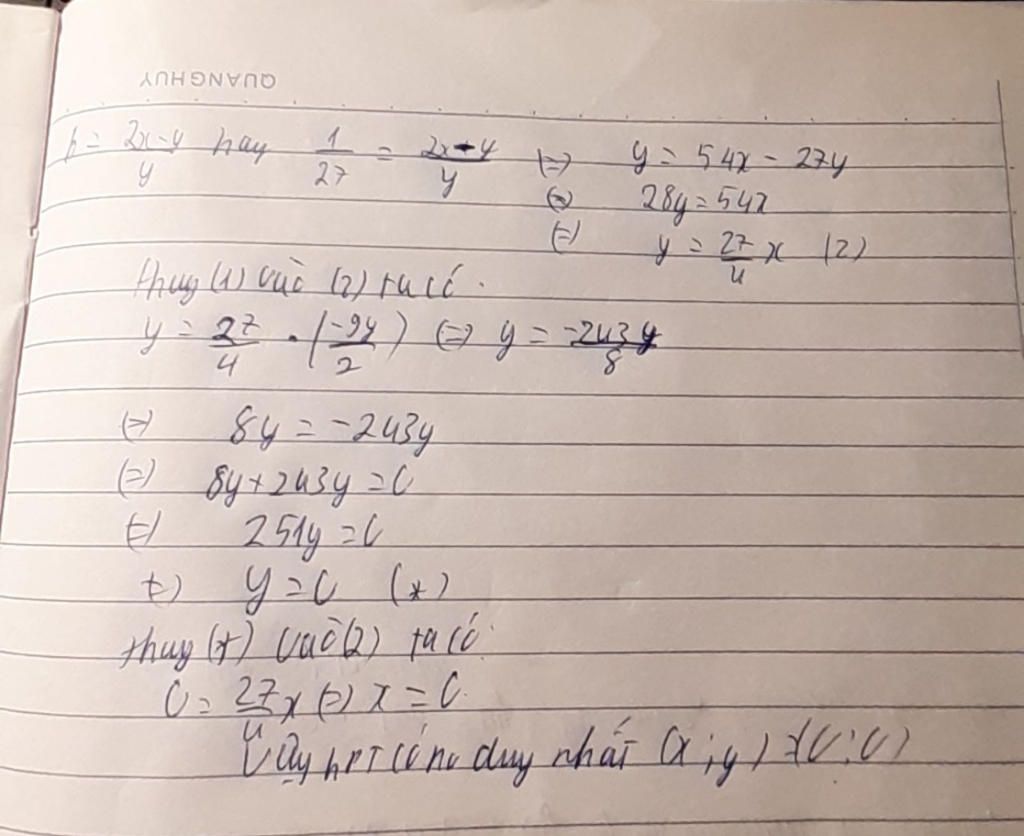 QUANGHUY
h = \frac{2x-y}{y} hay \frac{1}{27} = \frac{2x-y}{y} (=) y = 54x - 27y
(=) 28y = 54x
(=) y = \frac{27}{4} x (2)
thay (1) vào (2) ta có.
y = \frac{27}{4} . (\frac{-9y}{2}) (=) y = \frac{-243y}{8}
(=) 8y = -243y
(=) 8y + 243y = 0
(=) 251y = 0
(=) y = 0 (*)
thay (*) vào (2) ta có:
0 = \frac{27}{4} x (=) x = 0.
Vậy hPT có no duy nhất (x ; y) = (0 ; 0)